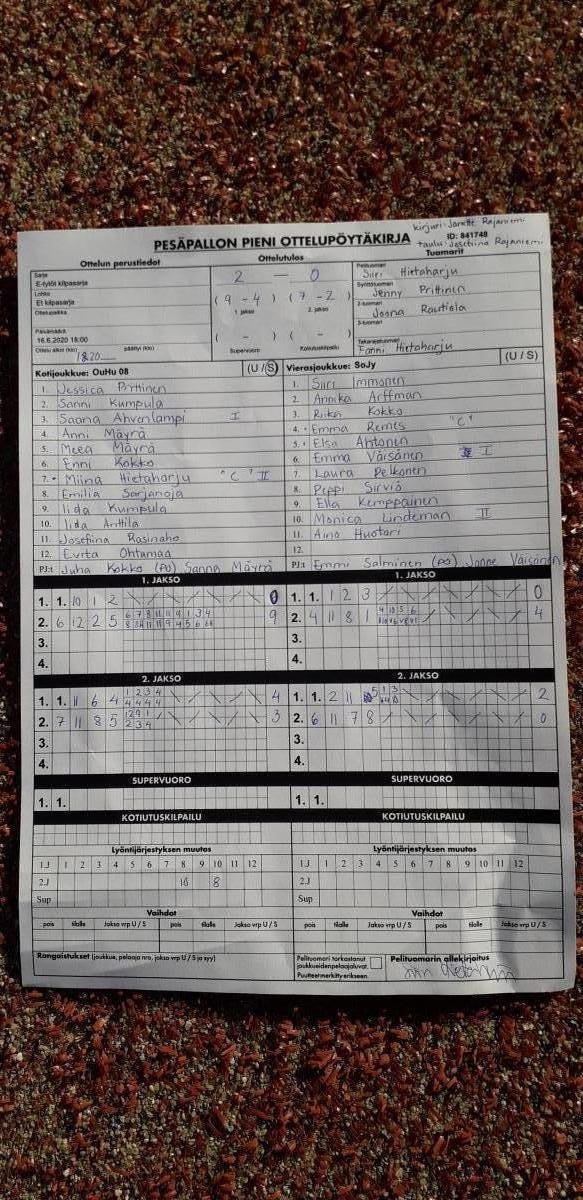 kirjuri: Janette Rajaniemi
PESÄPALLON PIENI OTTELUPÖYTÄKIRJA
ID: 841748
taulu: Josefiina Rajaniemi
Ottelun perustiedot
Ottelutulos
Tuomarit
Sarja
E-tytöt kilpasarja
Lohko
Et kilpasarja
Ottelupaikka
Päivämäärä
16.6.2020 18:00
Ottelu alkoi (klo) päättyi (klo)
1820
2 — 0
( 9 - 4 ) ( 7 - 2 )
1. jakso 2. jakso
( - ) ( - )
Supervuoro Kotiutuskilpailu
Pelituomari
Siiri Hietaharju
Syöttötuomari
Jenny Prittinen
2-tuomari
Joona Rautiola
3-tuomari
Takarajatuomari
Fanni Hietaharju
Kotijoukkue: OuHu 08 (U / S)
1. Jessica Prittinen
2. Sanni Kumpula
3. Saana Ahvenlampi I
4. Anni Mäyrä
5. Meea Mäyrä
6. Enni Kokko
7. Miina Hietaharju "C" II
8. Emilia Sarjanoja
9. Iida Kumpula
10. Iida Anttila
11. Josefiina Rasinaho
12. Evita Ohtamaa
PJ:t Juha Kokko (PO) Sanna Mäyrä
Vierasjoukkue: SoJy (U / S)
1. Siiri Immonen
2. Annika Arffman
3. Riika Kokko
4. Emma Remes "C"
5. Elsa Ahtonen
6. Emma Väisänen I
7. Laura Pelkonen
8. Peppi Sirviö
9. Ella Kemppainen
10. Monica Lindeman II
11. Aino Huotari
12.
PJ:t Emmi Salminen (PO) Janne Väisänen
1. JAKSO
1. 1. 10 1 2 0
2. 6 12 2 5 9
3.
4.
1. JAKSO
1. 1. 1 2 3 0
2. 4 11 8 1 4
3.
4.
2. JAKSO
1. 1. 11 6 4 4
2. 7 11 8 5 3
3.
4.
2. JAKSO
1. 1. 2 11 2
2. 6 11 7 8 0
3.
4.
SUPERVUORO
1. 1.
SUPERVUORO
1. 1.
KOTIUTUSKILPAILU
KOTIUTUSKILPAILU
Lyöntijärjestyksen muutos
1.J 1 2 3 4 5 6 7 8 9 10 11 12
2.J 10 8
Sup
Lyöntijärjestyksen muutos
1.J 1 2 3 4 5 6 7 8 9 10 11 12
2.J
Sup
Vaihdot
pois tilalle Jakso vrp U / S pois tilalle Jakso vrp U / S
Vaihdot
pois tilalle Jakso vrp U / S pois tilalle Jakso vrp U / S
Rangaistukset (joukkue, pelaaja nro, jakso vrp U / S ja syy)
Pelituomari tarkastanut
joukkueidenpelaajaluvat.
Puutteetmerkittyerikseen.
Pelituomarin allekirjoitus